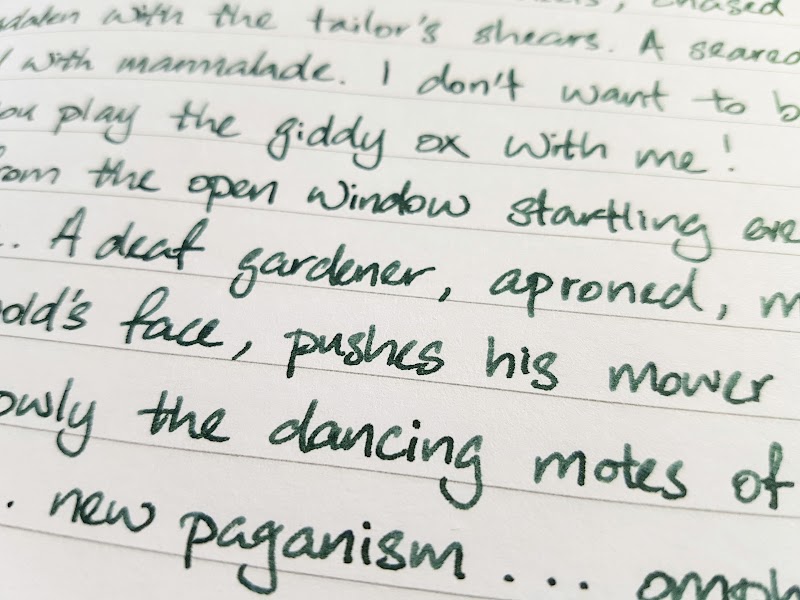 chased
with the tailor's shears. A
with marmalade. I don't want to
play the giddy ox with me!
the open window startling
A deaf gardener, aproned,
face, pushes his mower
the dancing motes of
. new paganism ...